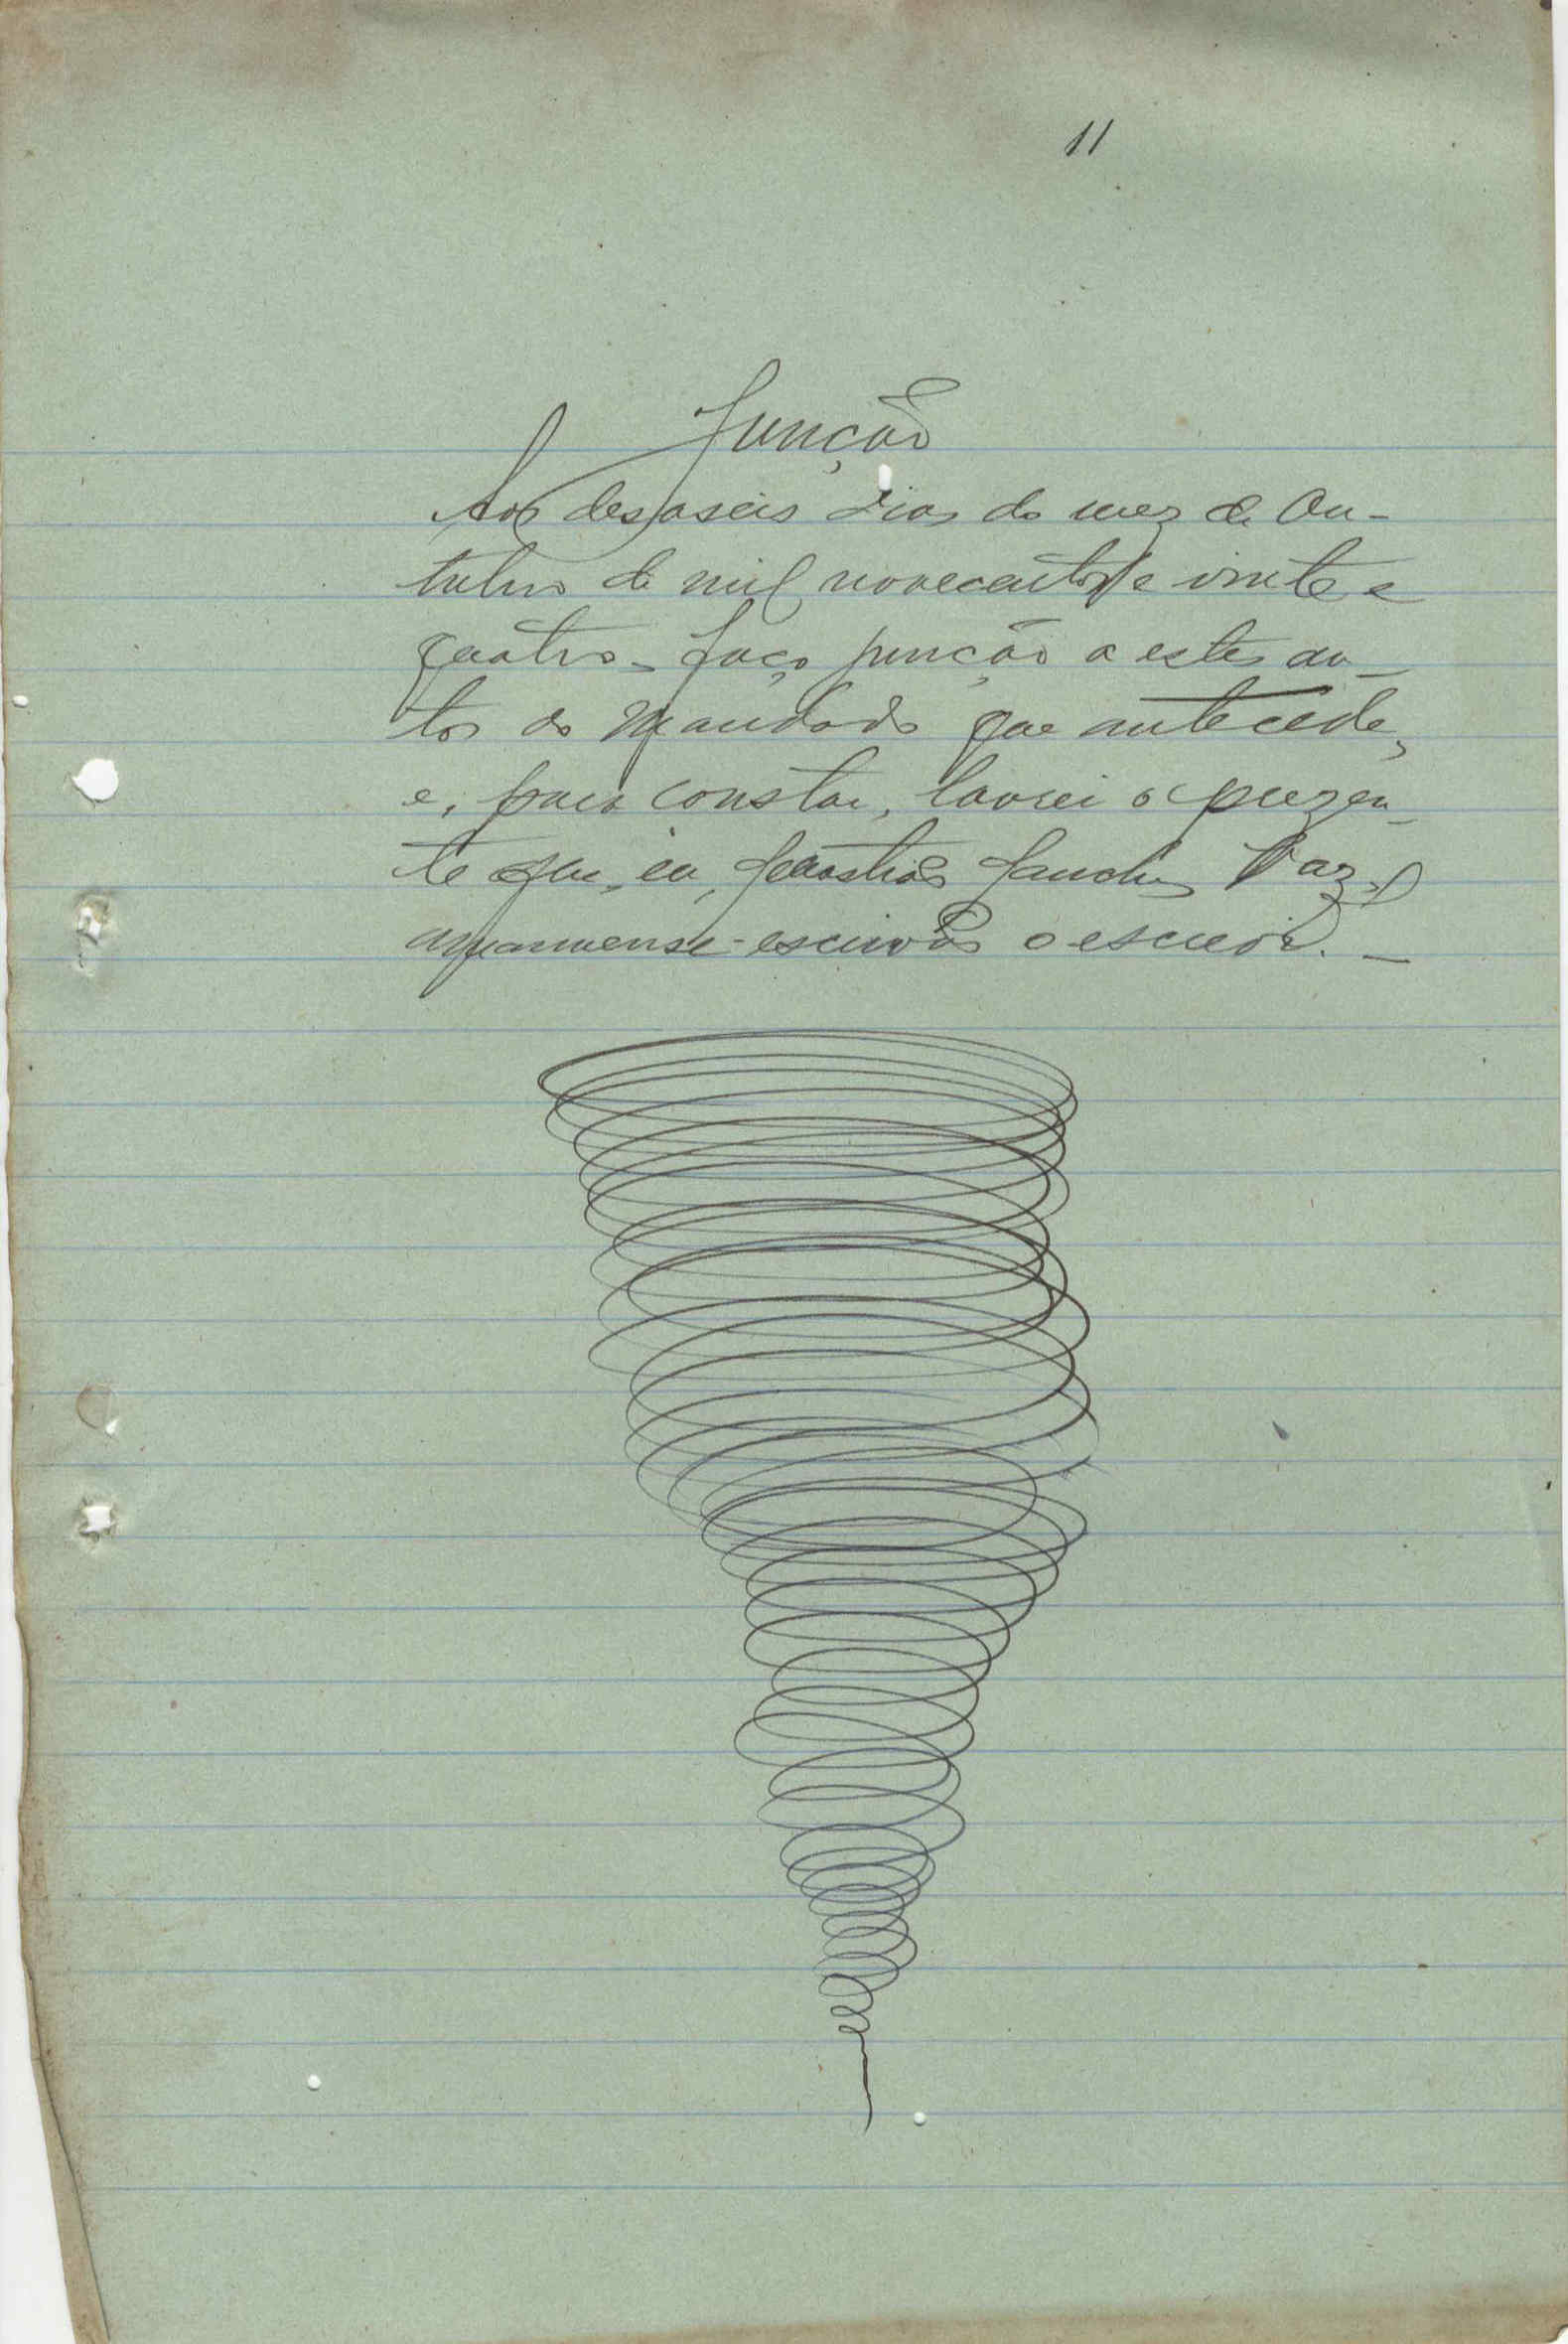 11
Juncção
Aos desaseis dias do mez de Ou-
tubro de mil novecentos e vinte e
quatro - faço juncção a estes au-
tos do mandado que antecede,
e, para constar, lavrei o prezen-
te que, eu, Sanches Vaz,
amanuense-escrivão o escrevi. -